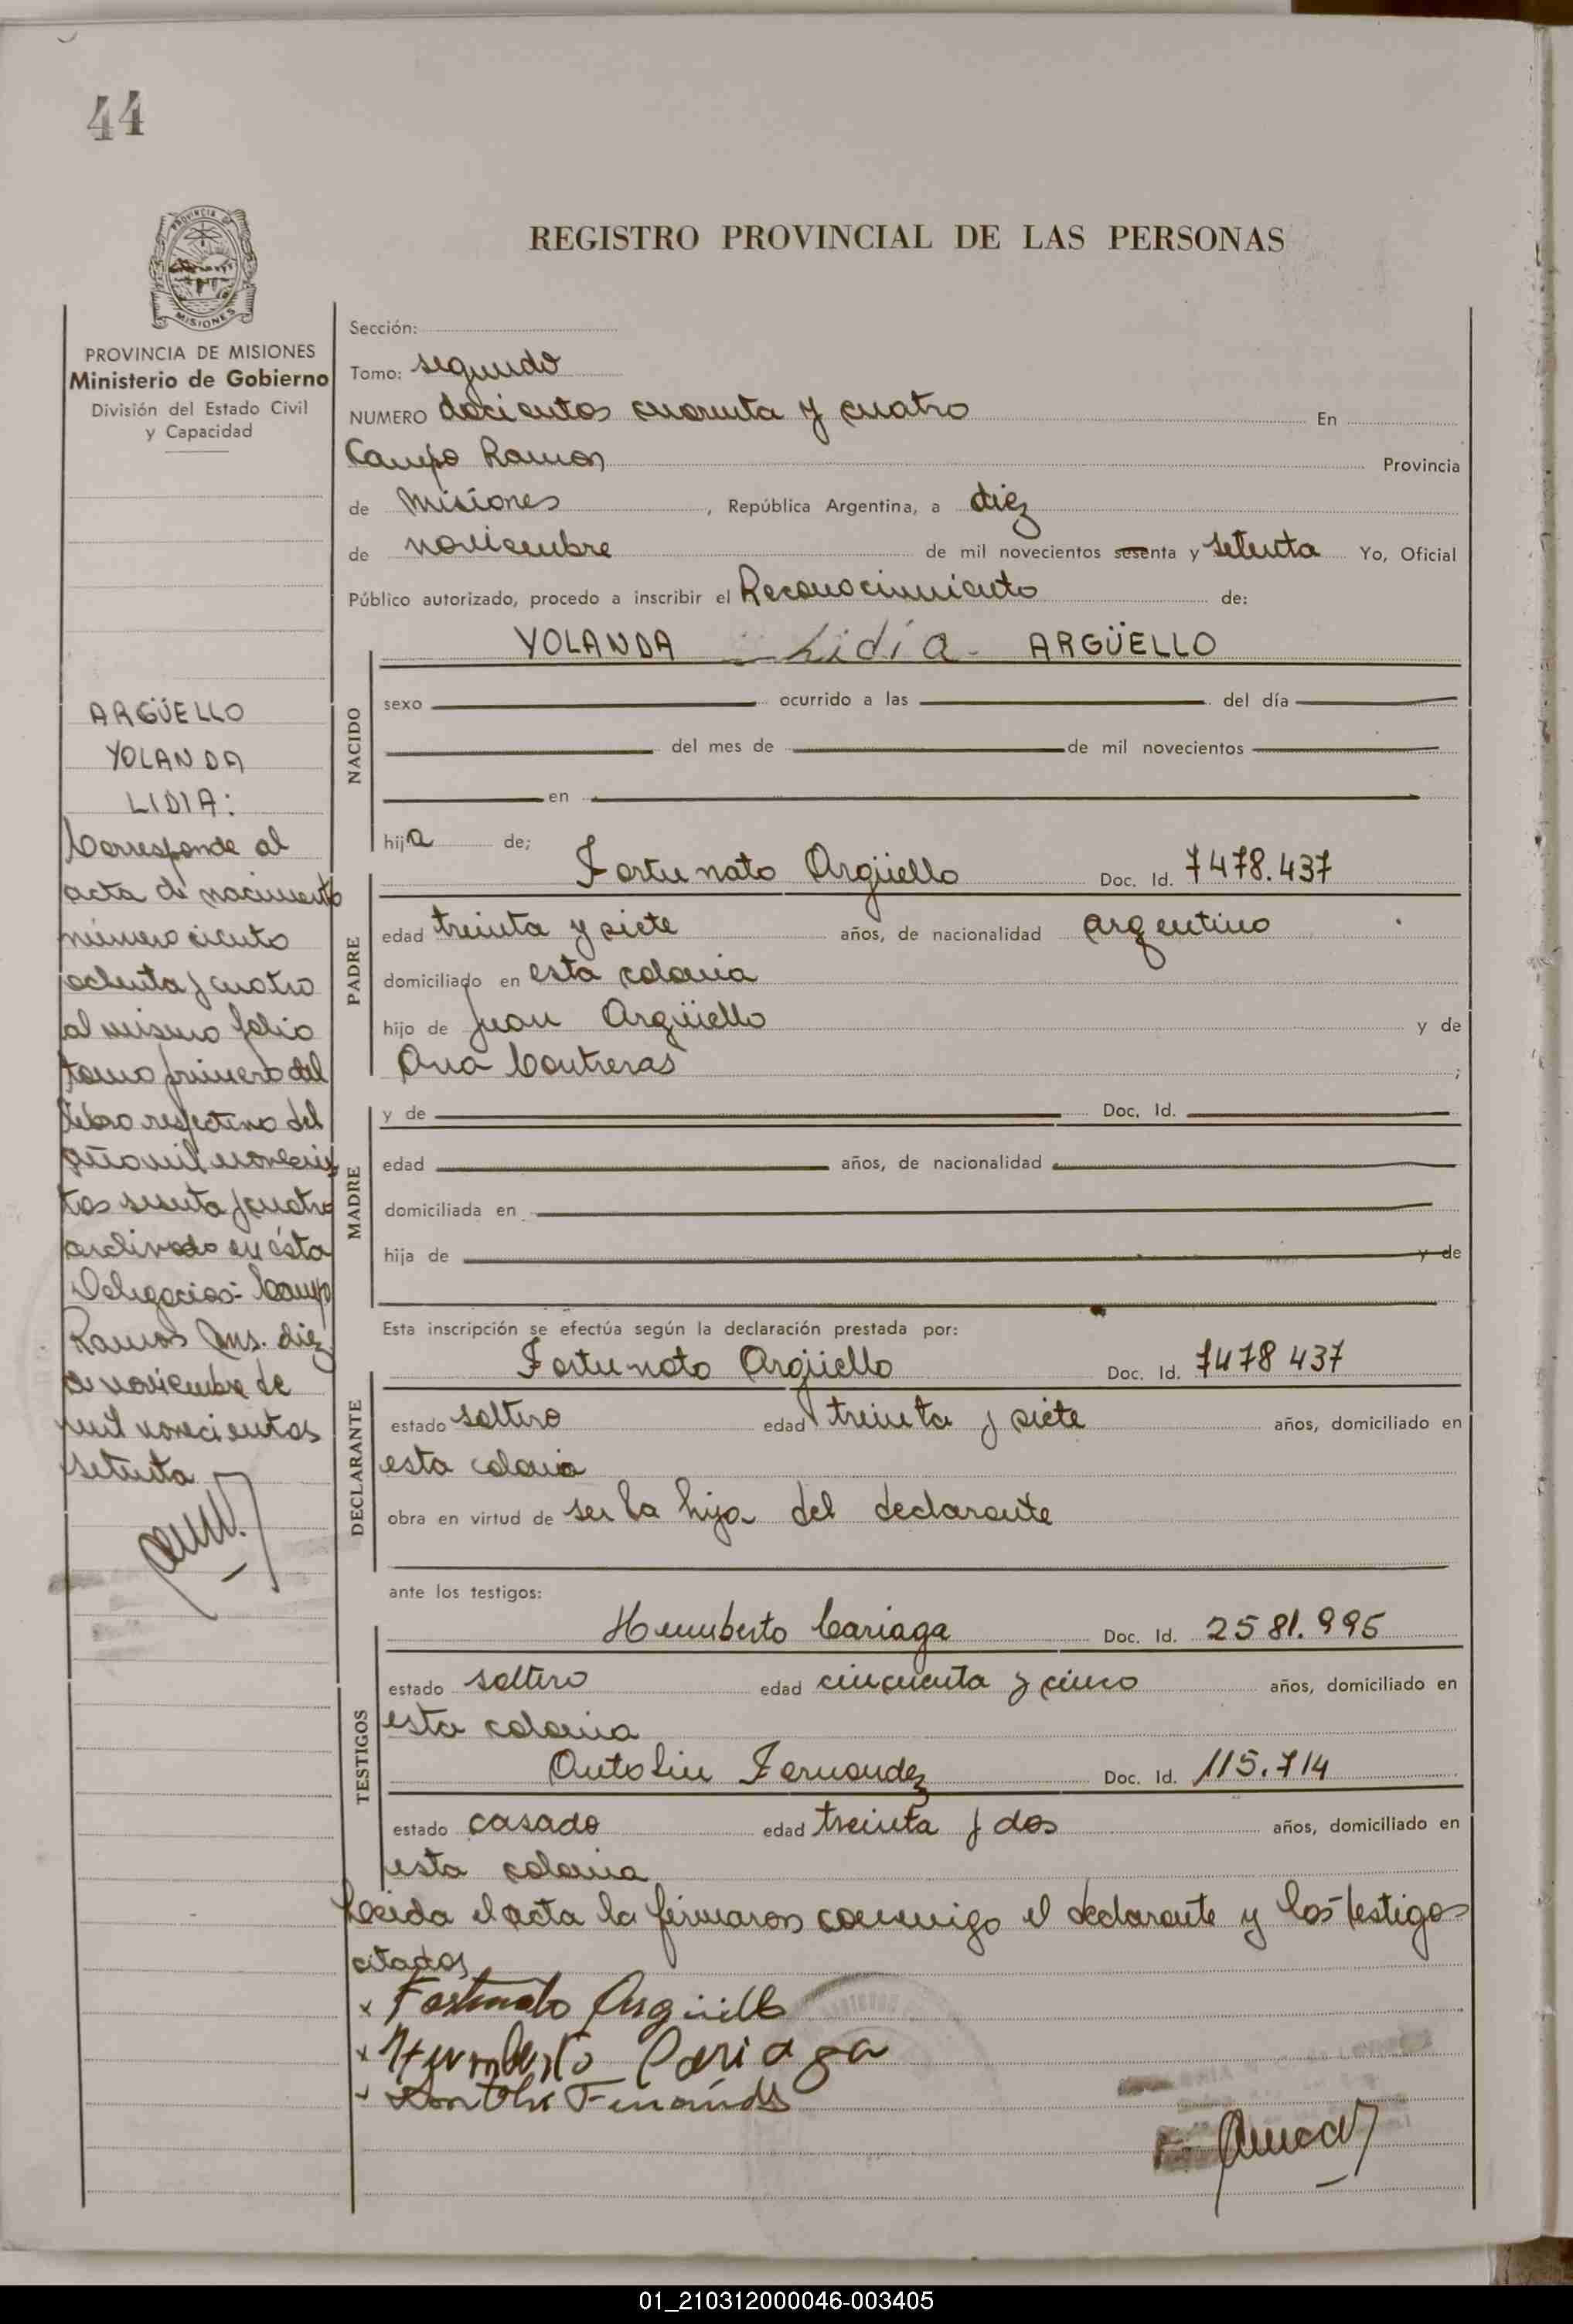 44
REGISTRO PROVINCIAL DE LAS PERSONAS
PROVINCIA DE MISIONES
Ministerio de Gobierno
División del Estado Civil
y Capacidad
Sección:
Tomo: segundo
NUMERO docientos cuarenta y cuatro En
Campo Ramon Provincia
de Misiones, República Argentina, a diez
de noviembre de mil novecientos sesenta y setenta Yo, Oficial
Público autorizado, procedo a inscribir el Reconocimiento de:
YOLANDA Lidia ARGÜELLO
NACIDO
sexo ocurrido a las del día
del mes de de mil novecientos
en
hija de;
PADRE
Fortunato Argüello Doc. Id. 7478.437
edad treinta y siete años, de nacionalidad argentino
domiciliado en esta colonia
hijo de Juan Argüello y de
Ana Contreras ;
MADRE
y de Doc. Id.
edad años, de nacionalidad
domiciliada en
hija de y de
Esta inscripción se efectúa según la declaración prestada por:
DECLARANTE
Fortunato Argüello Doc. Id. 7478 437
estado soltero edad treinta y siete años, domiciliado en
esta colonia
obra en virtud de ser la hija del declarante
ante los testigos:
TESTIGOS
Humberto Cariaga Doc. Id. 2581.995
estado soltero edad cincuenta y cinco años, domiciliado en
esta colonia
Antolin Fernandez Doc. Id. 115.714
estado casado edad treinta y dos años, domiciliado en
esta colonia
Leida el acta la firmaron conmigo el declarante y los testigos
citados
x Fortunato Argüello
x Humberto Cariaga
ARGÜELLO
YOLANDA
LIDIA:
Corresponde al
acta de nacimiento
número ciento
ochenta y cuatro
al mismo folio
tomo primero del
libro respectivo del
año mil novecien
tos sesenta y cuatro
archivado en ésta
Delegacion- Campo
Ramon Mns. diez
de noviembre de
mil novecientos
setenta
01_210312000046-003405